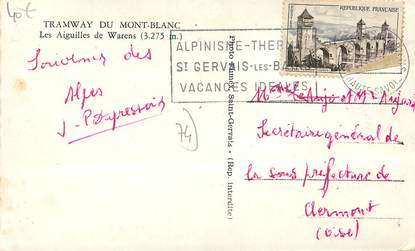 40€
TRAMWAY DU MONT-BLANC
Les Aiguilles de Warens (3.275 m.)
Souvenir des
Alpes
74
ALPINISME-THER
St GERVAIS-LES-BA
VACANCES IDEALES
REPUBLIQUE FRANÇAISE
HAUTE SAVOIE
Photo Saint-Gervais. - (Rep. Interdite)
Secrétaire général de
la sous préfecture de
Clermont
(Oise)